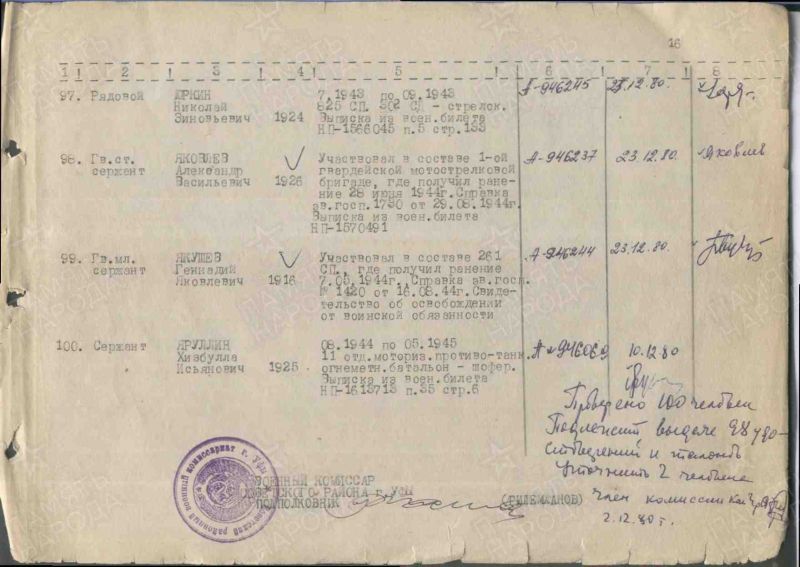 16
1 ! 2 ! 3 ! 4 ! 5 ! 6 ! 7 ! 8
97. Рядовой ЮРКИН 7.1943 по 09.1943 А-946245 23.12.80.
Николай 825 СП. 302 СД - стрелок.
Зиновьевич 1924 Выписка из воен.билета
НП-1566045 п.5 стр.133
98. Гв.ст. ЯКОВЛЕВ Участвовал в составе 1-ой А-946237 23.12.80. Яковлев
сержант Александр гвардейской мотострелковой
Васильевич 1926 бригаде, где получил ране-
ние 28 июня 1944г. Справка
эв.госп.1790 от 29.08.1944г.
Выписка из воен.билета
НП-1570491
99. Гв.мл. ЯКУШЕВ Участвовал в составе 261 А-946244 23.12.80.
сержант Геннадий СП., где получил ранение
Яковлевич 1916 7.05.1944г. Справка эв.госп.
№ 1420 от 16.08.44г.Свиде-
тельство об освобождении
от воинской обязанности
100. Сержант ЯРУЛЛИН 08.1944 по 05.1945 А-946069 10.12.80
Хизбулла 11 отд.моториз.противо-танк.
Исьянович 1925 огнеметн.батальон - шофер.
Выписка из воен.билета
НП-1613713 п.35 стр.6
Проверено 100 человек
Подлежит выдаче 98 удо-
стоверений и талонов
Уточнить 2 человека
член комиссии
2.12.80г.
ВОЕННЫЙ КОМИССАР
СОВЕТСКОГО РАЙОНА г. Уфы
ПОДПОЛКОВНИК (ГИЛЕМХАНОВ)
районный военный комиссариат г. Уфы
ПАМЯТЬ НАРОДА